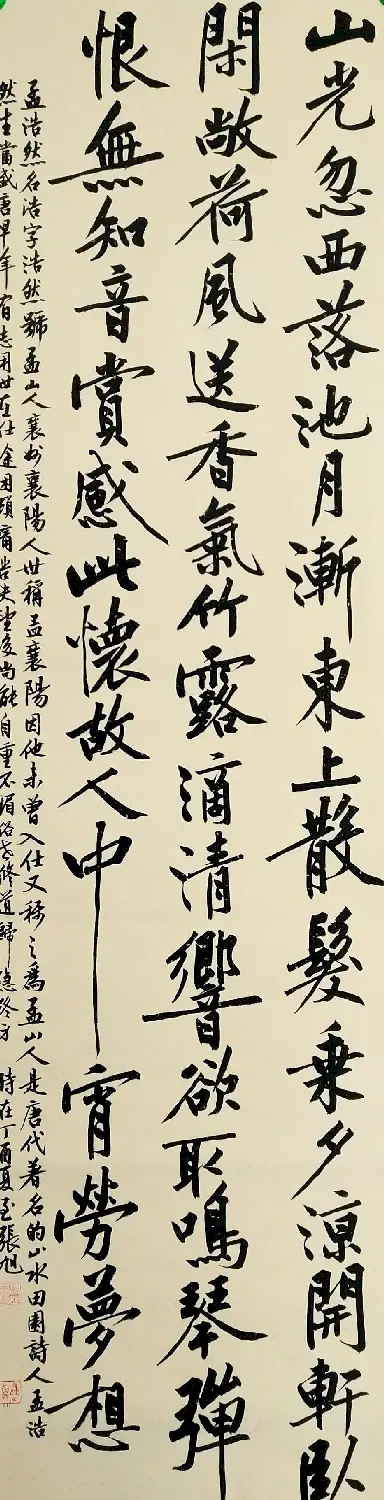 山光忽西落池月漸東上散髮乗夕涼開軒臥
閑敞荷風送香氣竹露滴清響欲取鳴琴彈
恨無知音賞感此懷故人中宵勞夢想
孟浩然名浩字浩然號孟山人襄州襄陽人世稱孟襄陽因他未曾入仕又稱之爲孟山人是唐代著名的山水田園詩人孟浩
然生當盛唐早年有志用世在仕途困頓痛苦失望後尚能自重不媚俗世修道歸隱終身 時在丁酉夏至張旭